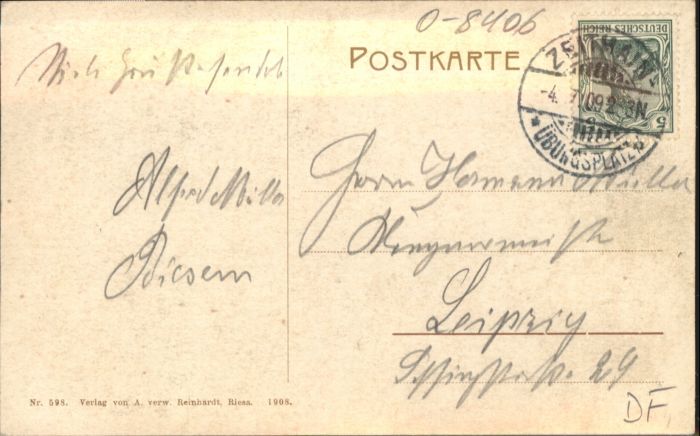 O-8406
POSTKARTE
DEUTSCHES REICH
5 5
ZEITHAIN
-4. 7. 09. 2-3N
* ÜBUNGSPLATZ *
Viele Grüße sendet
Alfred Müller
Herrn Hermann Müller
Leipzig
29
Nr. 598. Verlag von A. verw. Reinhardt, Riesa. 1908.
DF